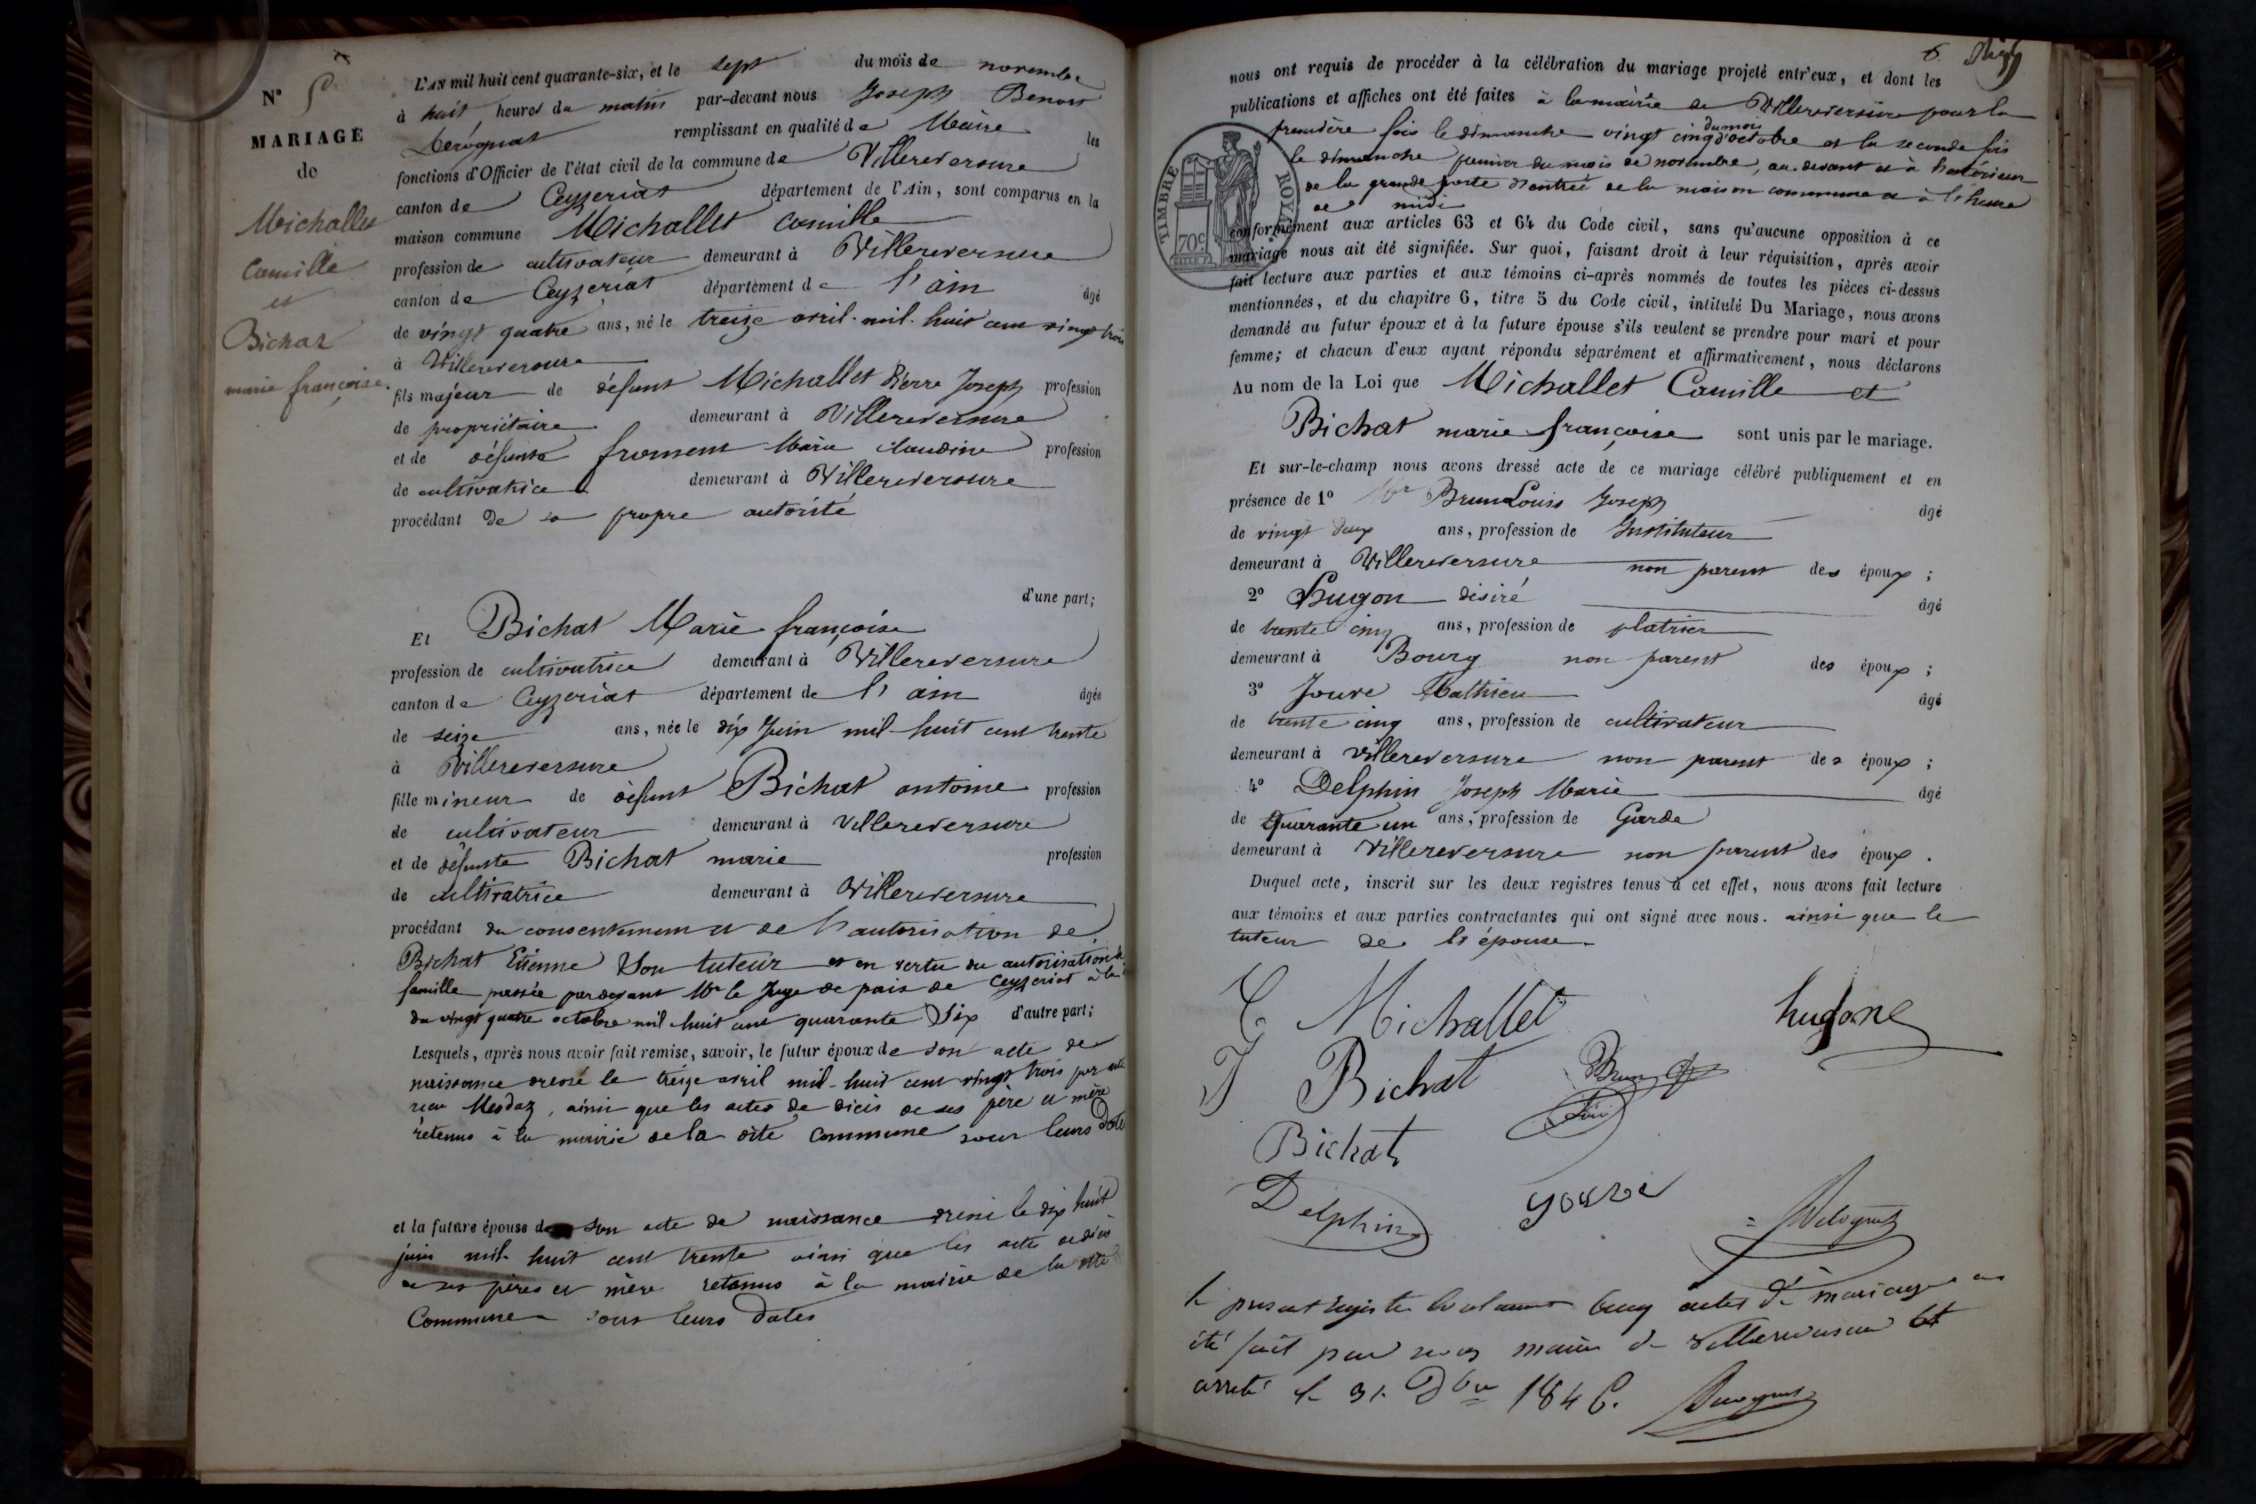 N° 5
MARIAGE
de
Michallet
Camille
et
Bichat
marie françoise.
L'AN mil huit cent quarante-six, et le sept du mois de novembre
à huit heures du matin par-devant nous Joseph Benoit
Derognat remplissant en qualité de Maire les
fonctions d'Officier de l'état civil de la commune de Villereversure
canton de Ceyzeriat département de l'Ain, sont comparus en la
maison commune Michallet Camille
profession de cultivateur demeurant à Villereversure
canton de Ceyzeriat département de l'ain âgé
de vingt quatre ans, né le treize avril mil huit cent vingt trois
à Villereversure
fils majeur de défunt Michallet Pierre Joseph profession
de propriétaire demeurant à Villereversure
et de défunte froment Marie Claudine profession
de cultivatrice demeurant à Villereversure
procédant de sa propre autorité
d'une part;
Et Bichat Marie françoise
profession de cultivatrice demeurant à Villereversure
canton de Ceyzeriat département de l'ain âgée
de seize ans, née le dix Juin mil huit cent trente
à Villereversure
fille mineur de défunt Bichat antoine profession
de cultivateur demeurant à Villereversure
et de défunte Bichat marie profession
de cultivatrice demeurant à Villereversure
procédant du consentement et de l'autorisation de
Bichat Etienne Son tuteur et en vertu du autorisation de
famille passée pardevant Mr le Juge de paix de Ceyzeriat à la
du vingt quatre octobre mil huit cent quarante Six d'autre part;
Lesquels, après nous avoir fait remise, savoir, le futur époux de son acte de
naissance dressé le treize avril mil huit cent vingt trois par
Mesdaz, ainsi que les actes de décès de ses père et mère
retenus à la mairie de la dite commune sous leurs Dates
et la future épouse de son acte de naissance dressé le dix huit
juin mil huit cent trente ainsi que les actes de décès
de ses pères et mère retenus à la mairie de la dite
Commune sous leurs Dates
6
nous ont requis de procéder à la célébration du mariage projeté entr'eux, et dont les
publications et affiches ont été faites à la mairie de Villereversure pour la
première fois le dimanche vingt cinq du mois d'octobre et la seconde fois
le dimanche premier du mois de novembre, au devant et à l'extérieur
de la grande porte d'entrée de la maison commune et à l'heure
de midi
TIMBRE ROYAL
70c
conformément aux articles 63 et 64 du Code civil, sans qu'aucune opposition à ce
mariage nous ait été signifiée. Sur quoi, faisant droit à leur réquisition, après avoir
fait lecture aux parties et aux témoins ci-après nommés de toutes les pièces ci-dessus
mentionnées, et du chapitre 6, titre 5 du Code civil, intitulé Du Mariage, nous avons
demandé au futur époux et à la future épouse s'ils veulent se prendre pour mari et pour
femme; et chacun d'eux ayant répondu séparément et affirmativement, nous déclarons
Au nom de la Loi que Michallet Camille et
Bichat marie françoise sont unis par le mariage.
Et sur-le-champ nous avons dressé acte de ce mariage célébré publiquement et en
présence de 1° Mr Brun Louis Joseph âgé
de vingt deux ans, profession de Instituteur
demeurant à Villereversure non parent des époux;
2° Hugon désiré âgé
de trente cinq ans, profession de platrier
demeurant à Bourg non parent des époux;
3° Jouve Mathieu âgé
de trente cinq ans, profession de cultivateur
demeurant à Villereversure non parent des époux;
4° Delphin Joseph Marie âgé
de Quarante un ans, profession de Garde
demeurant à Villereversure non parent des époux.
Duquel acte, inscrit sur les deux registres tenus à cet effet, nous avons fait lecture
aux témoins et aux parties contractantes qui ont signé avec nous. ainsi que le
tuteur de l'épouse.
C Michallet
hugon
F Bichat
Brun
Bichat
Delphin
Jouve
Derognat
le présent registre contenant cinq actes de mariage a
été fait par nous maire de Villereversure et
arrêté le 31 Dbre 1846.
Derognat